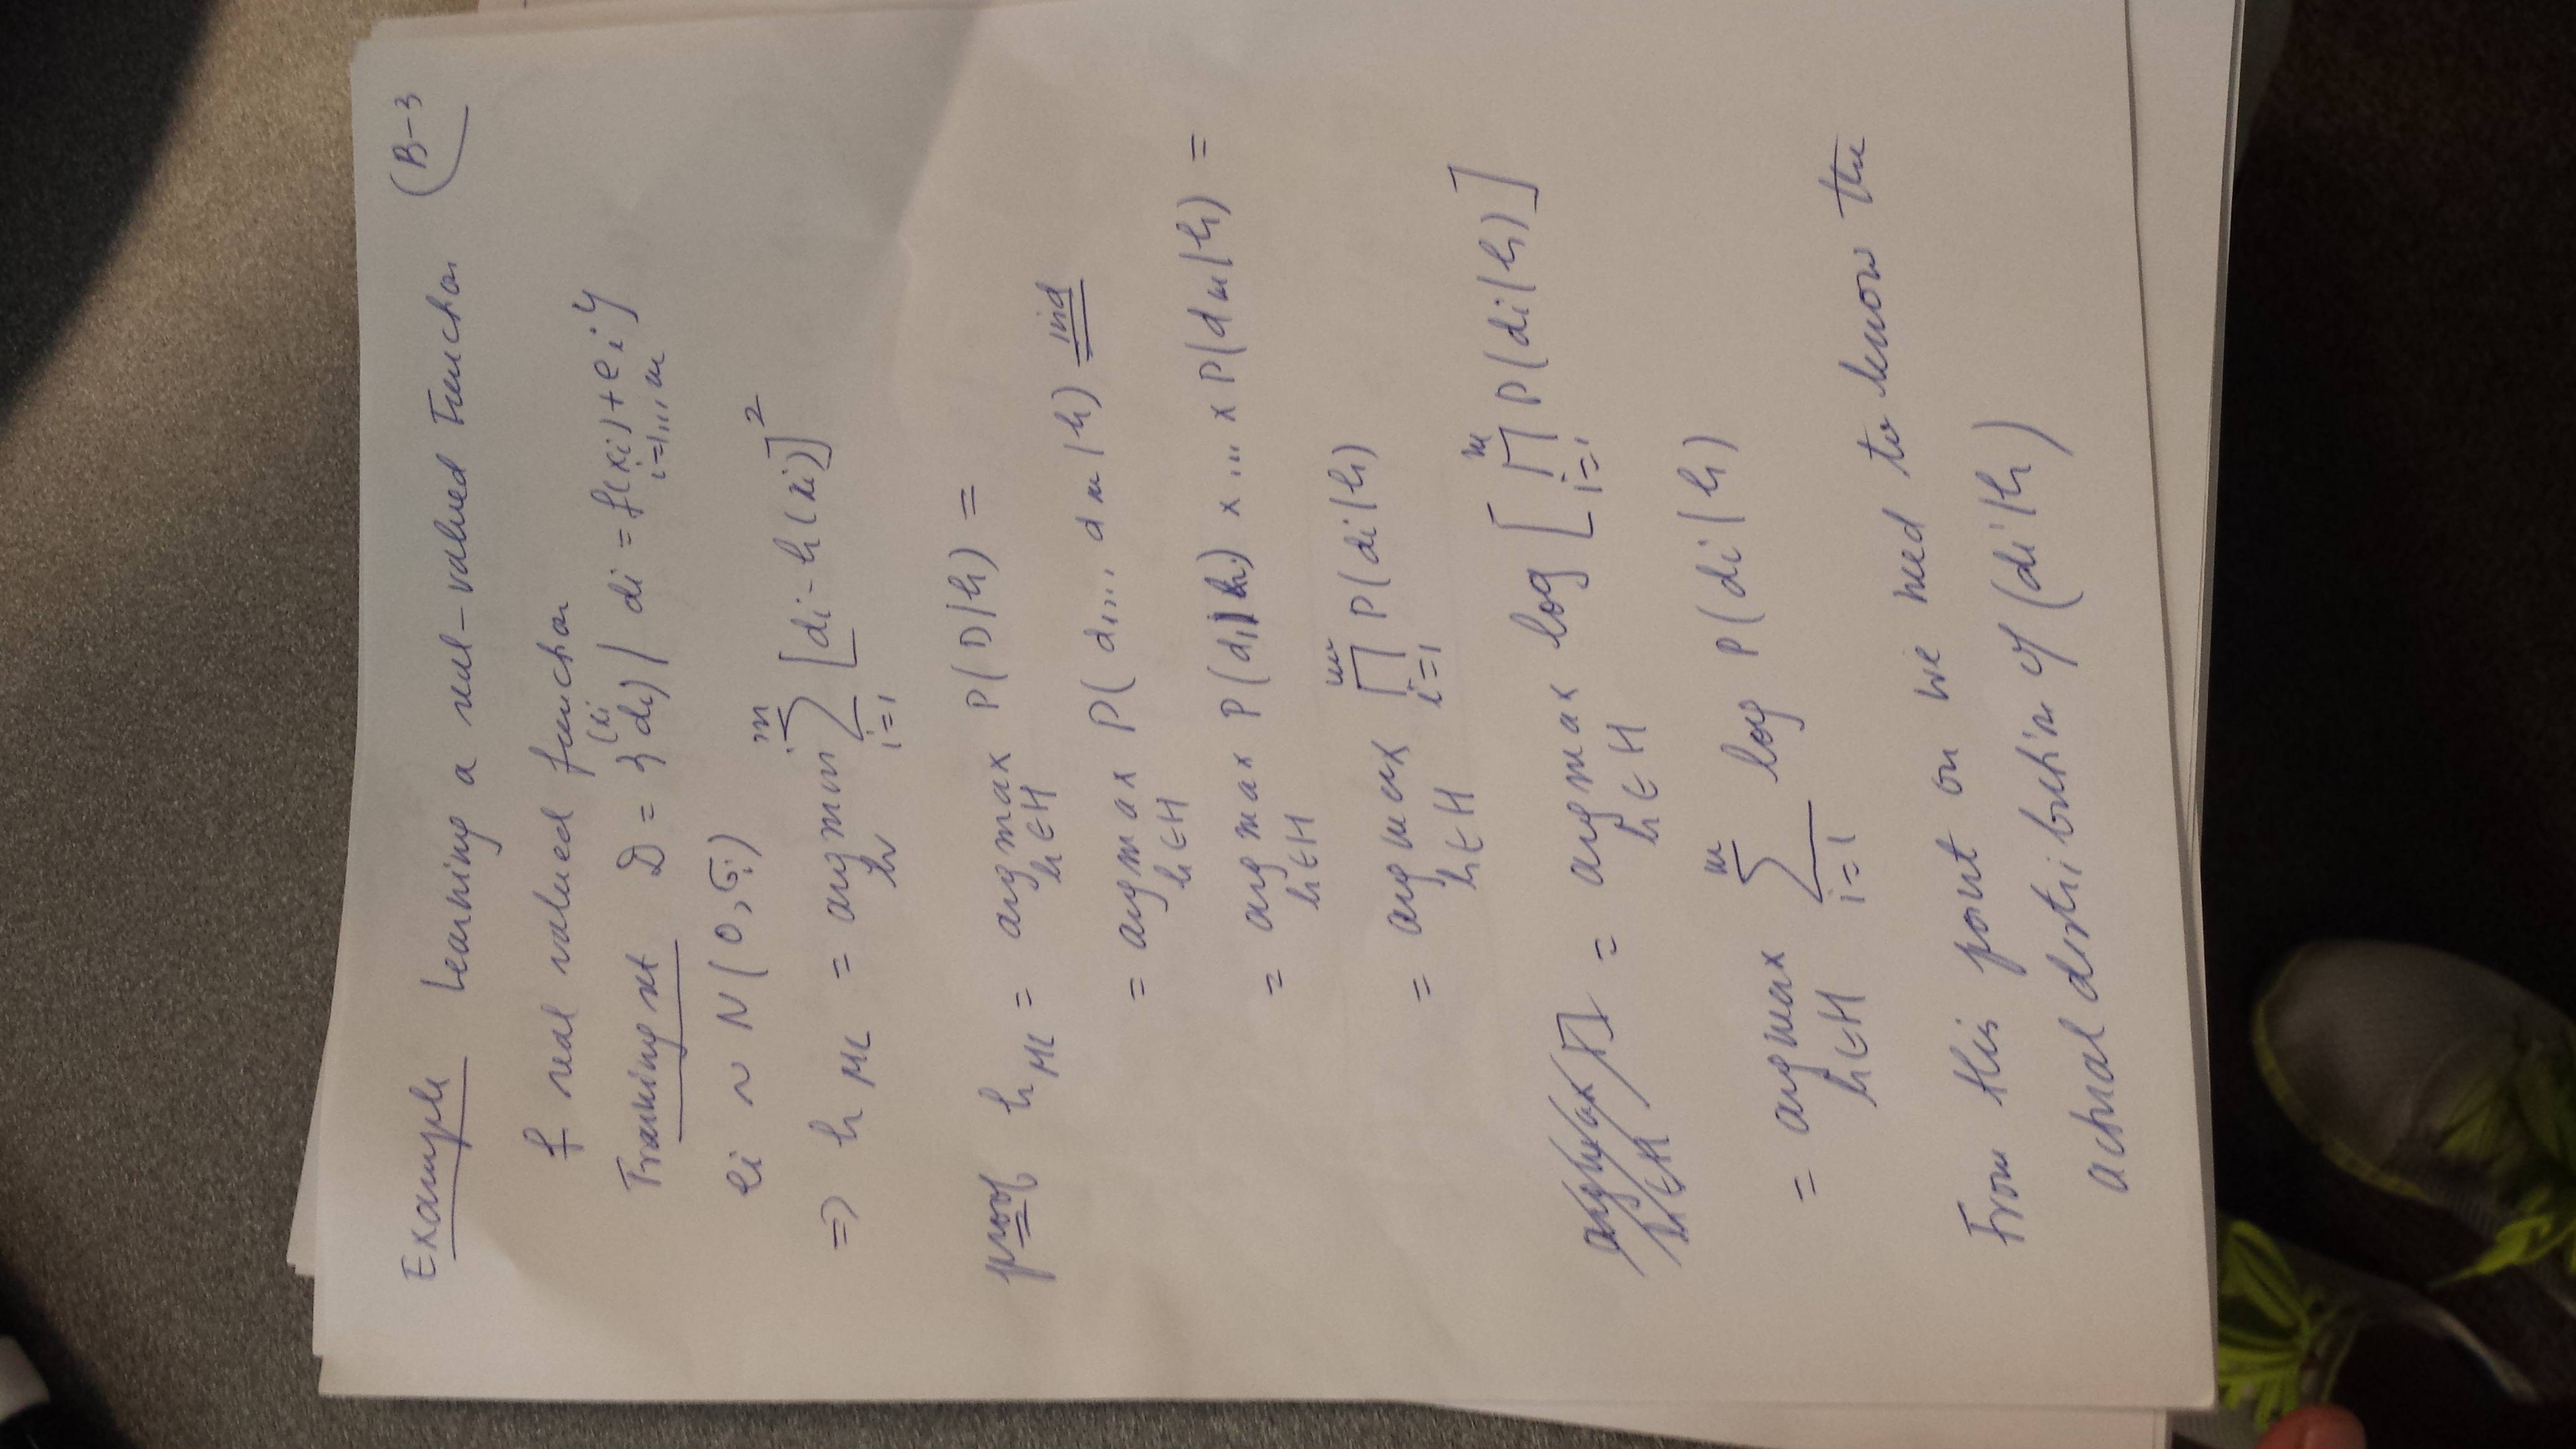 Example Learning a real-valued Function (B-3
f real valued function
Training set D = {(xi, di) | di = f(xi) + ei} i=1,..., m
ei ~ N(0, σi)
=> h ML = argmin h ∑ i=1 m [di - h(xi)]²
proof h ML = argmax h∈H P(D|h) =
= argmax h∈H P(d1,..., dm|h) ind
= argmax h∈H P(d1|h) x ... x P(dm|h) =
= argmax h∈H ∏ i=1 m P(di|h)
= argmax h∈H log [∏ i=1 m P(di|h)]
= argmax h∈H ∑ i=1 m log P(di|h)
From this point on we need to know the
actual distribution of (di|h)